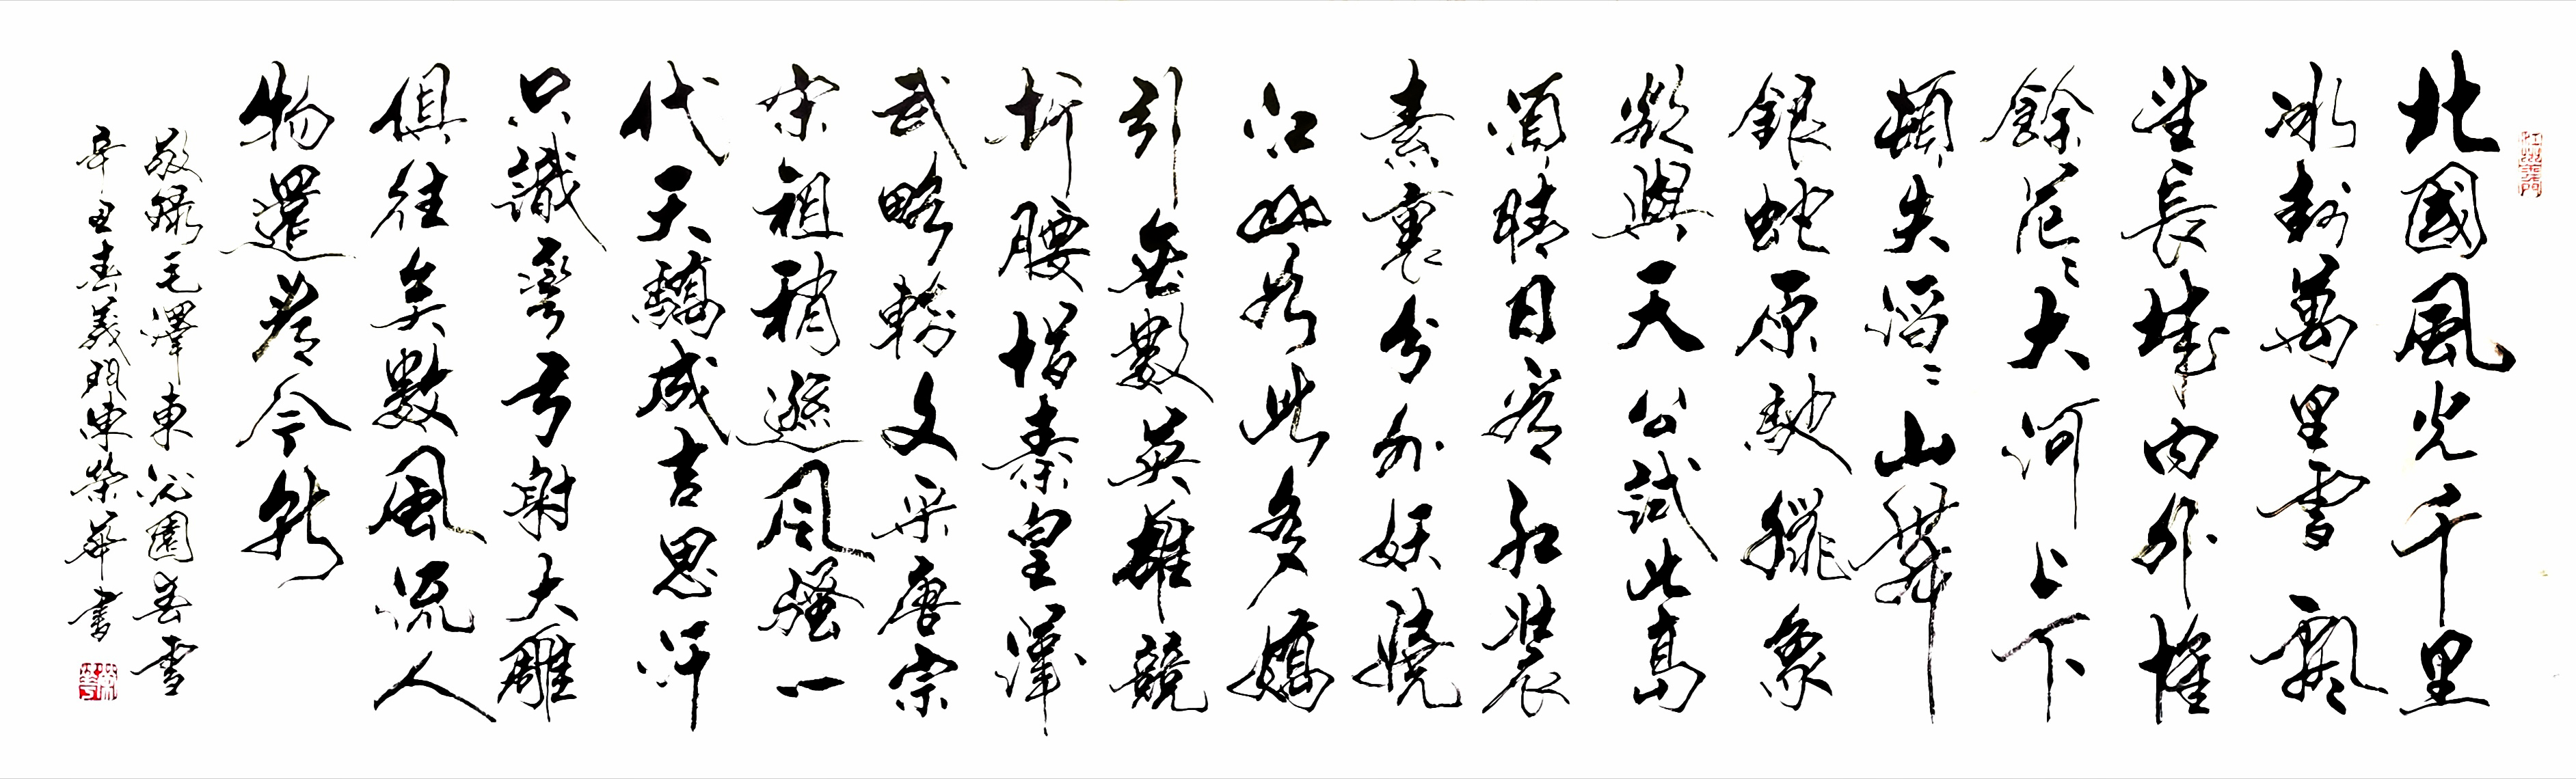 江州義門
北國風光千里
冰封萬里雪飄
望長城内外惟
餘茫〻大河上下
頓失滔〻山舞
銀蛇原馳臘象
欲與天公試比高
須晴日看紅裝
素裹分外妖嬈
江山如此多嬌
引無數英雄競
折腰惜秦皇漢
武略輸文采唐宗
宋祖稍遜風騷一
代天驕成吉思汗
只識彎弓射大雕
俱往矣數風流人
物還看今朝
敬錄毛澤東沁園春雪
辛丑春義門陳榮華書
榮華